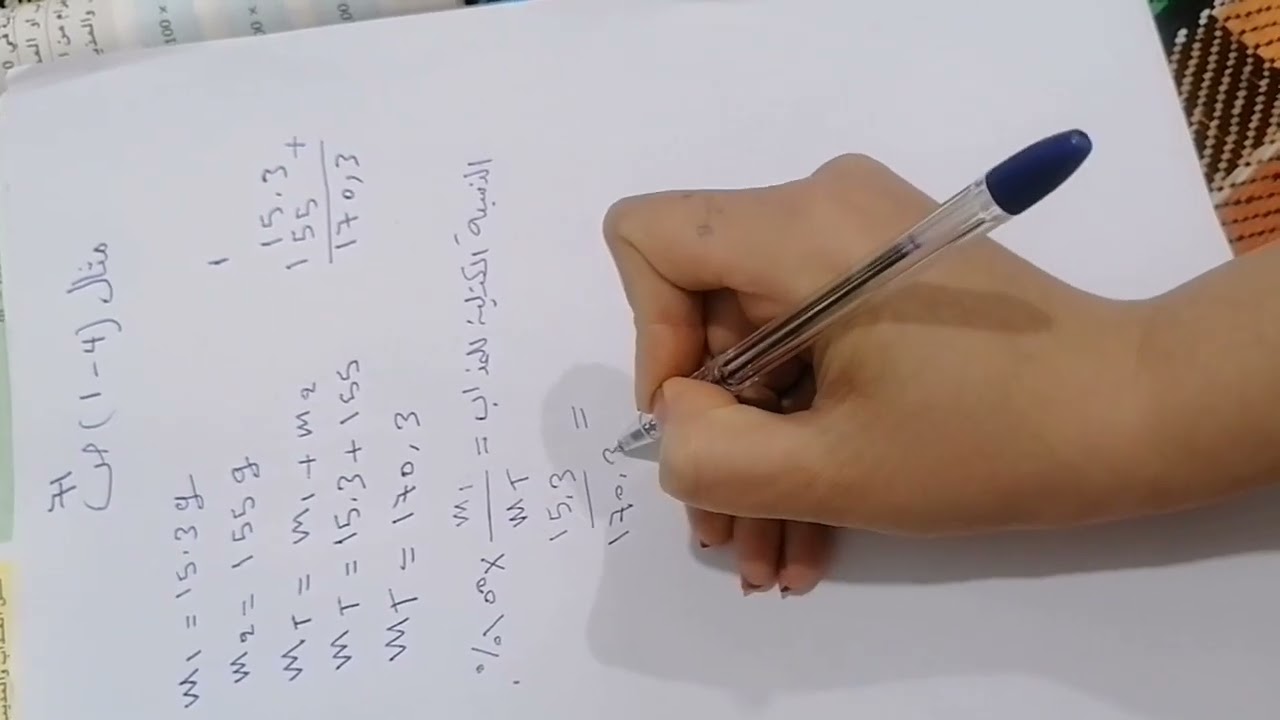 مثال (4-1) ص 71
m1 = 15.3 g
m2 = 155 g
mT = m1 + m2
mT = 15.3 + 155
mT = 170,3
1
15.3
155 +
170,3
النسبة الكتلية للمذاب = m1 / mT × 100 %
= 15.3 / 170,3